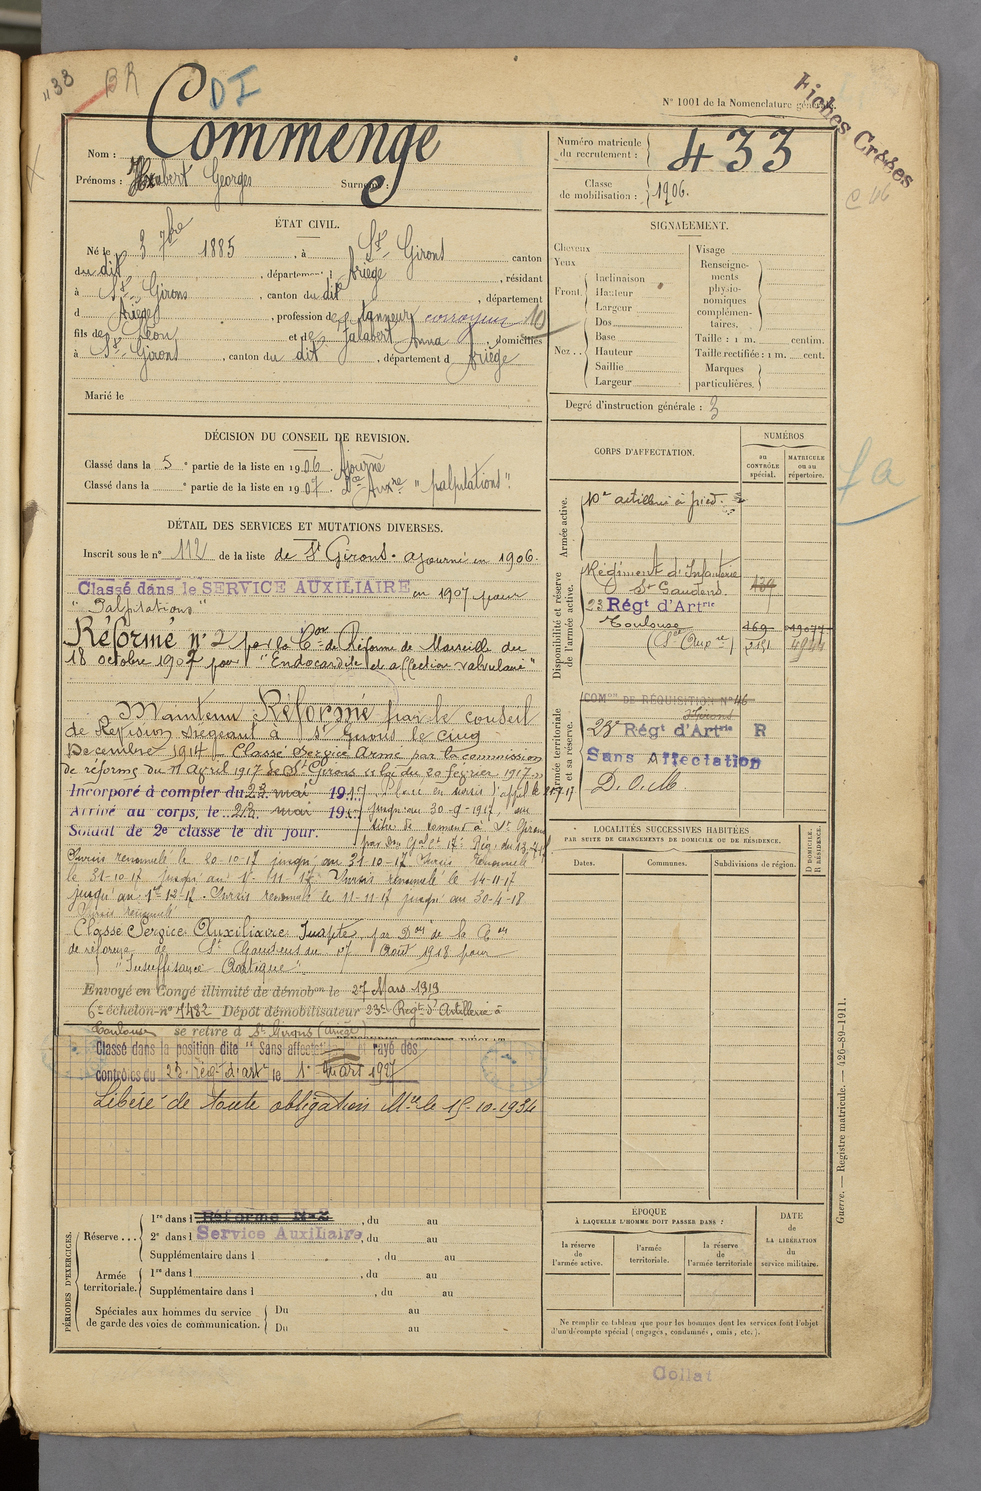 "33 BR DI
N° 1001 de la Nomenclature générale.
Fiches Créées
Nom : Commenge
Prénoms : Hubert Georges Surnom :
Numéro matricule du recrutement : 433
Classe de mobilisation : 1906.
ÉTAT CIVIL.
Né le 3 7bre 1885, à St Girons canton
du dit, département Ariège, résidant
à St Girons, canton du dit, département
d Ariège, profession de tanneur corroyeur 10
fils de Léon et de Jalabert Anna, domiciliés
à St Girons, canton du dit, département d Ariège
Marié le
SIGNALEMENT.
Cheveux
Yeux
Front. Inclinaison
Hauteur
Largeur
Nez.. Dos
Base
Hauteur
Saillie
Largeur
Visage
Renseignements physionomiques complémentaires.
Taille : 1 m. centim.
Taille rectifiée : 1 m. cent.
Marques particulières.
Degré d'instruction générale : 3
DÉCISION DU CONSEIL DE REVISION.
Classé dans la 5e partie de la liste en 1906. Ajourné
Classé dans la e partie de la liste en 1907. Sce Auxre "palpitations".
DÉTAIL DES SERVICES ET MUTATIONS DIVERSES.
Inscrit sous le n° 112 de la liste de St Girons. Ajourné en 1906.
Classé dans le SERVICE AUXILIAIRE en 1907 pour
"Palpitations"
Réformé n° 2 par la Con de Réforme de Marseille du
18 octobre 1907 pour "Endocardite et affection valvulaire"
Maintenu Réformé par le conseil
de Revision siégeant à St Girons le cinq
Decembre 1914 Classé Service Armé par la commission
de réforme du 11 Avril 1917 de St Girons loi du 20 février 1917
Incorporé à compter du 23 mai 1917. Placé en sursis d'appel le
Arrivé au corps, le 23 mai 1917 jusqu'au 30-9-1917, au
Soldat de 2e classe le dit jour. titre de à St Girons
Sursis renouvelé le 20-10-17 jusqu'au 31-10-17. Sursis renouvelé
le 31-10-17 jusqu'au 1-11-17 Sursis renouvelé le 14-11-17
jusqu'au 1er-12-17. Sursis renouvelé le 11-11-17 jusqu'au 30-4-18
Sursis renouvelé
Classé Service Auxiliaire Inapte, par Don de la Con
de réforme de St Gaudens du 07 Août 1918 pour
"Insuffisance Aortique".
Envoyé en Congé illimité de démobon le 27 Mars 1919
6e échelon n° 1482 Dépôt démobilisateur 23e Régt d'Artillerie à
Toulouse se retire à St Girons (Ariège)
Classé dans la position dite "Sans affectation" rayé des
contrôles du 23 rég. d'art. le 1er Mars 1927
Libéré de toute obligation Mre le 15-10-1934
CORPS D'AFFECTATION.
NUMÉROS
au CONTRÔLE spécial.
MATRICULE ou au répertoire.
Armée active.
artillerie à pied.
Disponibilité et réserve de l'armée active.
Régiment d'Infanterie
St Gaudens.
23 Régt d'Artrie
Toulouse
(Sce Auxre)
Armée territoriale et sa réserve.
COMon DE RÉQUISITION N° 46
St Girons
23e Régt d'Artrie R
Sans Affectation
D. O. M.
fa
LOCALITÉS SUCCESSIVES HABITÉES
PAR SUITE DE CHANGEMENTS DE DOMICILE OU DE RÉSIDENCE.
Dates. Communes. Subdivisions de région.
D DOMICILE. R RÉSIDENCE.
PÉRIODES D'EXERCICES.
Réserve ... 1re dans l Réformé N° 2, du au
2e dans l Service Auxiliaire, du au
Supplémentaire dans l , du au
Armée territoriale. 1re dans l , du au
Supplémentaire dans l , du au
Spéciales aux hommes du service de garde des voies de communication. Du au
Du au
ÉPOQUE
À LAQUELLE L'HOMME DOIT PASSER DANS :
la réserve de l'armée active.
l'armée territoriale.
la réserve de l'armée territoriale
DATE de LA LIBÉRATION du service militaire.
Ne remplir ce tableau que pour les hommes dont les services font l'objet
d'un décompte spécial (engagés, condamnés, omis, etc.).
Guerre. — Registre matricule. — 426-89-1911.
Collat